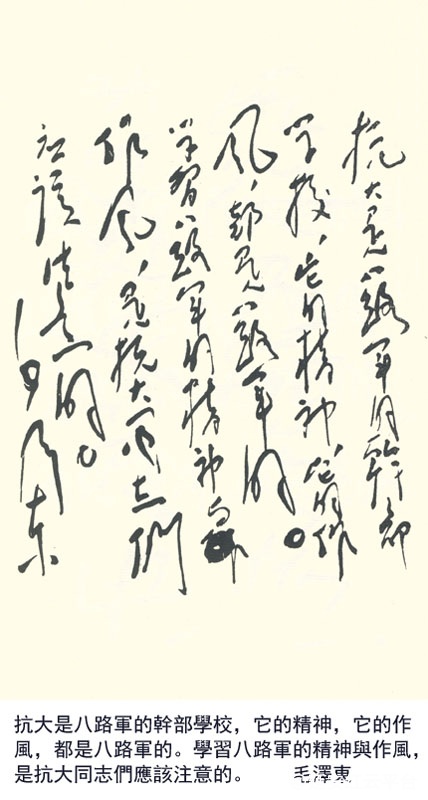 抗大是八路軍的幹部
学校，它的精神，它的作
风，都是八路軍的。
学習八路軍的精神与
作风，是抗大同志們
应該注意的。
毛泽东
抗大是八路軍的幹部學校，它的精神，它的作
風，都是八路軍的。學習八路軍的精神與作風，
是抗大同志們應該注意的。 毛澤東